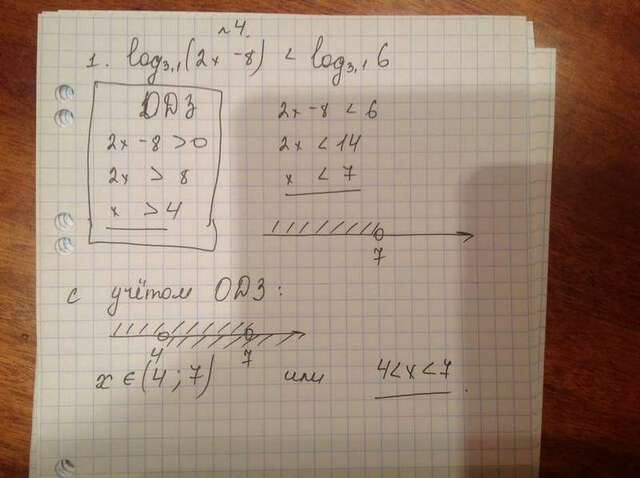 №4.
1. log₃,₁(2x -8) < log₃,₁ 6
ОДЗ
2x -8 >0
2x > 8
x >4
2x -8 < 6
2x < 14
x < 7
7
с учётом ОДЗ:
4 7
x ∈ (4 ; 7) или 4<x<7.